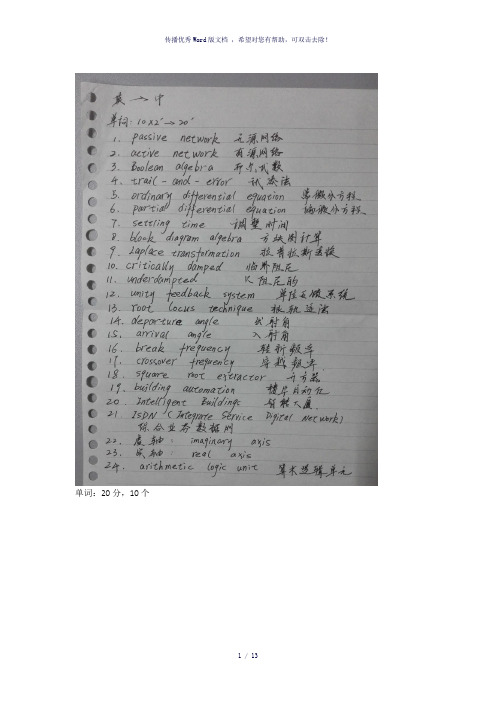 传播优秀Word版文档 ，希望对您有帮助，可双击去除！
英→中
单词: 10×2'→20'
1. passive network 无源网络
2. active network 有源网络
3. Boolean algebra 布尔代数
4. trail-and-error 试凑法
5. ordinary differential equation 常微分方程
6. partial differential equation 偏微分方程
7. settling time 调整时间
8. block diagram algebra 方块图计算
9. Laplace transformation 拉普拉斯变换
10. critically damped 临界阻尼
11. underdampted 欠阻尼的
12. unity feedback system 单位反馈系统
13. root locus technique 根轨迹法
14. departure angle 出射角
15. arrival angle 入射角
16. break frequency 转折频率
17. crossover frequency 穿越频率
18. square root extractor 开方器
19. building automation 楼宇自动化
20. Intelligent Buildings 智能大厦
21. ISDN (Integrate Service Digital Network)
综合业务数据网
22. 虚轴: imaginary axis
23. 实轴: real axis
24. arithmetic logic unit 算术逻辑单元
单词：20分，10个
1 / 13